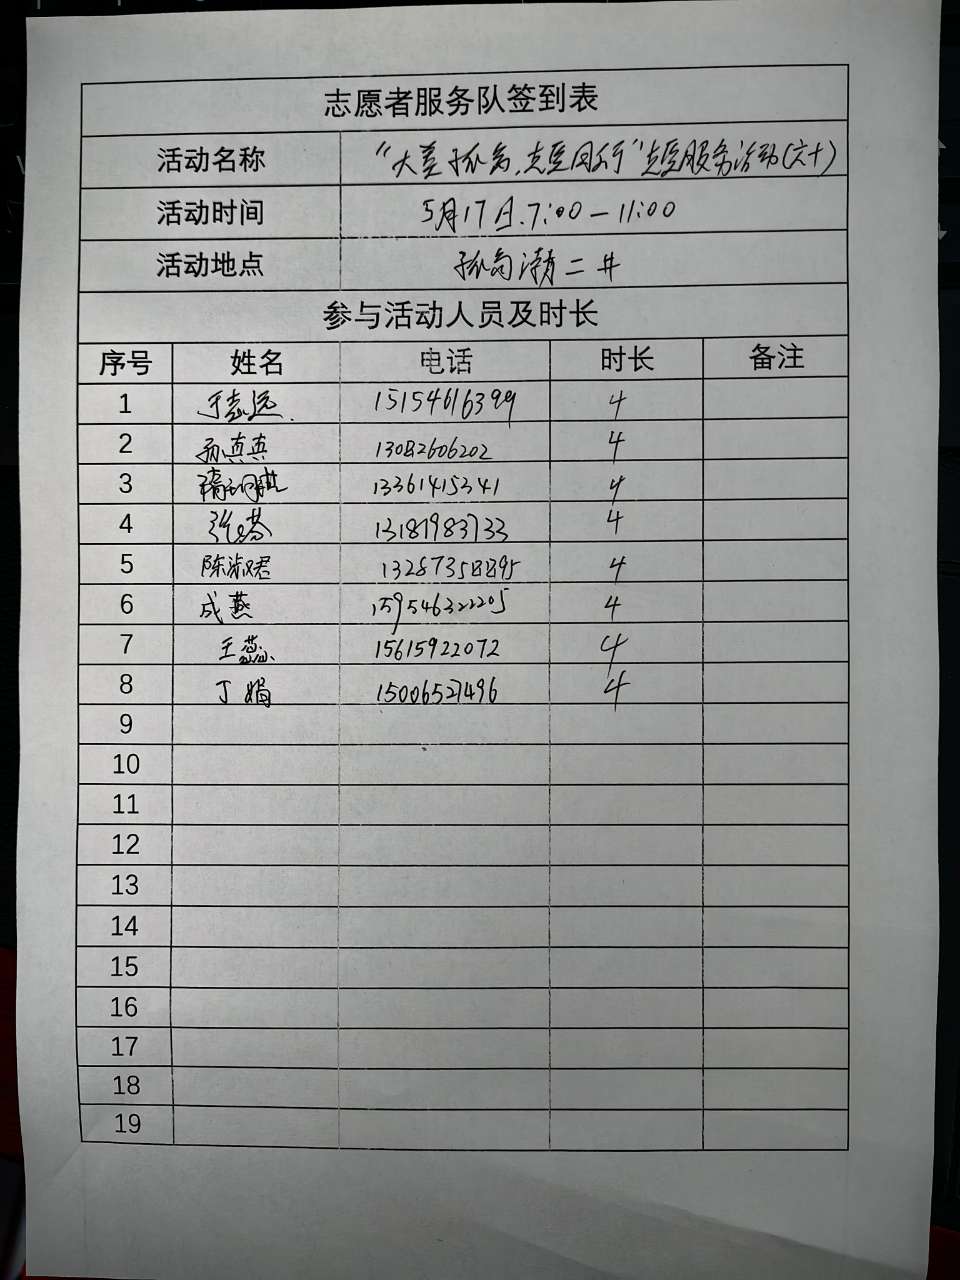 志愿者服务队签到表
活动名称 "大美孤岛,志愿同行"志愿服务活动(六十)
活动时间 5月17日.7:00—11:00
活动地点 孤岛渤二井
参与活动人员及时长
序号 姓名 电话 时长 备注
1 于志远 15154616399 4
2 孙真真 13082606202 4
3 13361415341 4
4 张芬 13181983733 4
5 陈淑君 13287358895 4
6 成燕 15954632205 4
7 王蕊 15615922072 4
8 丁娟 15006521496 4
9
10
11
12
13
14
15
16
17
18
19